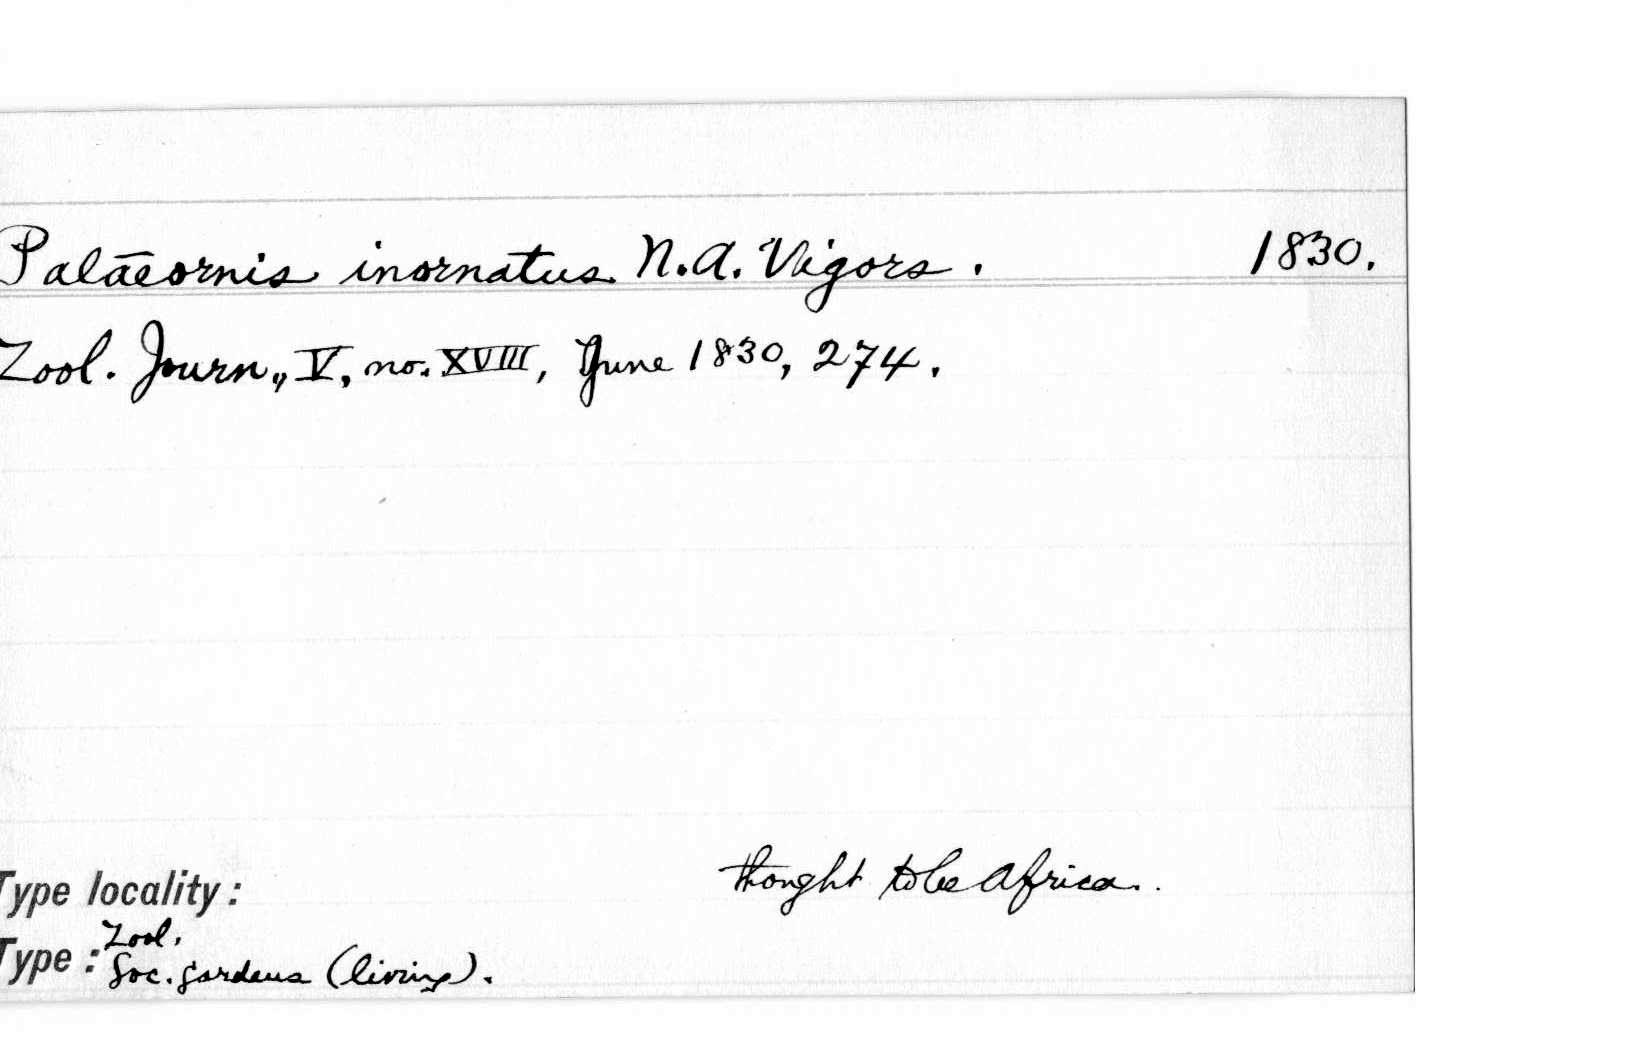 Palaeornis inornatus N.A. Vigors. 1830.
Zool. Journ., V, no. XVIII, June 1830, 274.
Type locality: thought to be Africa.
Zool.
Type: Soc. gardens (living).